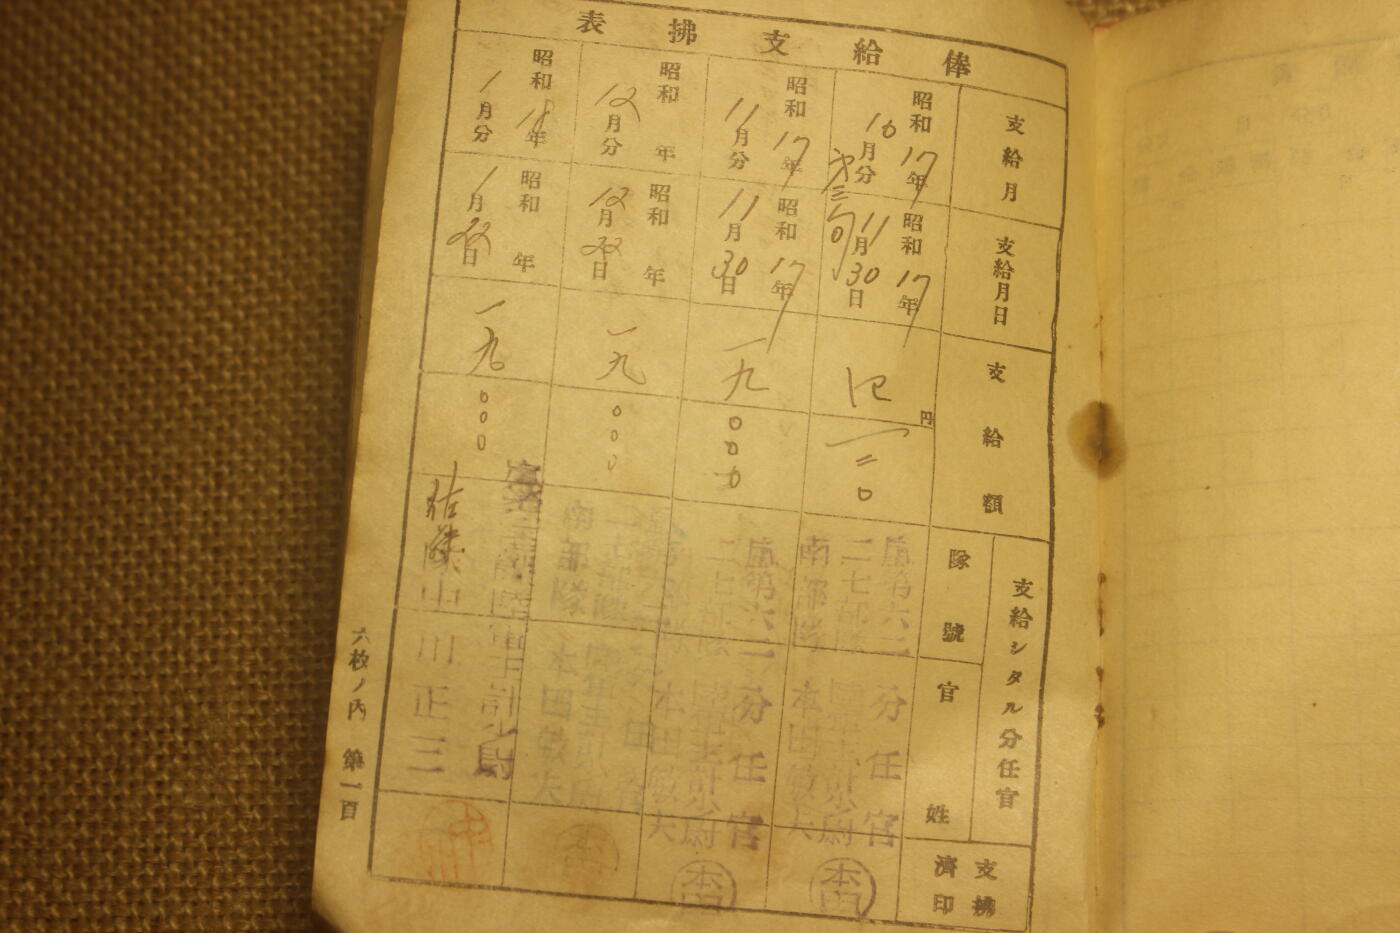 俸給支拂表
支給月
支給月日
支給額
支給シタル分任官
隊號
官姓
支拂濟印
昭和17年
10月分
昭和17年
11月30日
円
二〇
嵐第六二
二七部隊
南部隊
分任官
陸軍主計少尉
本田敏夫
本田
昭和17年
11月分
昭和17年
11月30日
一九
000
嵐第六二
二七部隊
分任官
陸軍主計少尉
本田敏夫
本田
昭和 年
12月分
昭和 年
12月22日
一九
000
二七部隊
南部隊
本田敏夫
昭和18年
1月分
昭和 年
1月22日
一九
000
佐藤
山川正三
六枚ノ内 第一頁